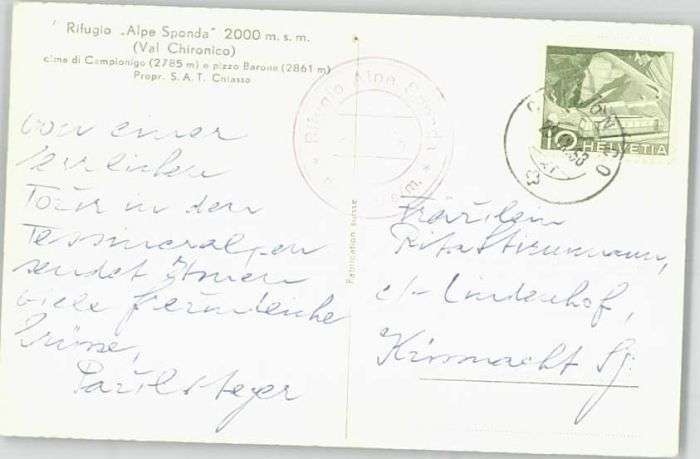 Rifugio „Alpe Sponda" 2000 m. s. m.
(Val Chironico)
cima di Campionigo (2785 m) e pizzo Barone (2861 m)
Propr. S. A. T. Chiasso
von einer
herrlichen
Tour in den
Tessineralpen
sendet Ihnen
viele freundliche
Grüsse,
Paul Steger
Rifugio Alpe Sponda
Fabrication suisse
10 HELVETIA
CHIRONICO
Fräulein
Rita
c/- Lindenhof,
Küssnacht Sz.